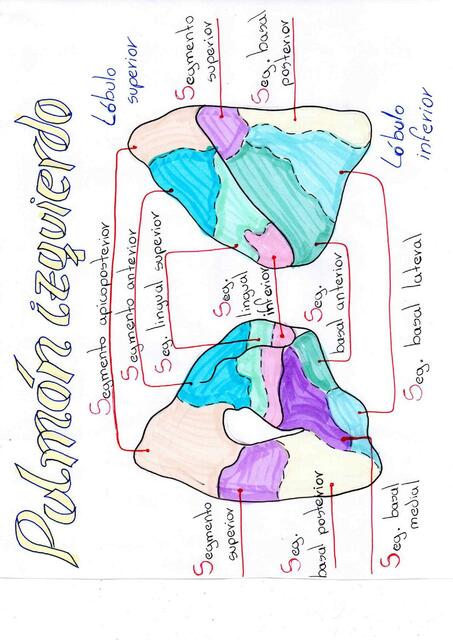 Pulmón izquierdo
Segmento apicoposterior
Lóbulo
superior
Segmento anterior
Seg. lingual superior
Segmento
superior
Segmento
superior
Seg.
lingual
inferior
Seg. basal
posterior
Seg.
basal posterior
Seg.
basal anterior
Seg. basal
medial
Seg. basal lateral
Lóbulo
inferior